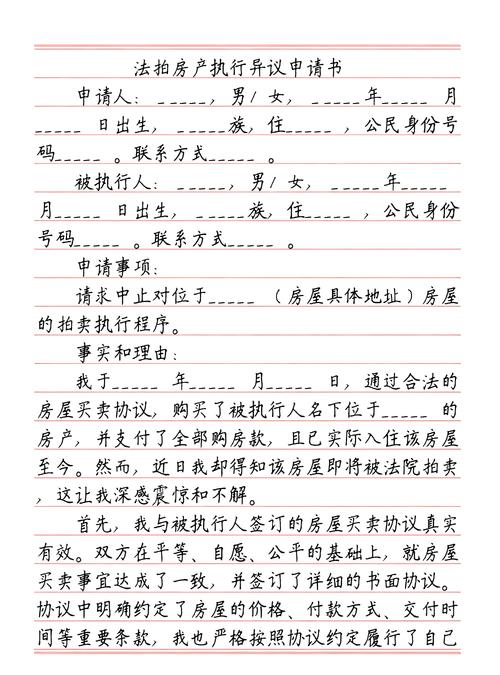 法拍房产执行异议申请书
申请人： _____，男/ 女， _____年____ 月
_____ 日出生， _____族，住_____ ，公民身份号
码_____ 。联系方式_____ 。
被执行人： _____，男/ 女， _____年_____
月_____ 日出生， _____族，住_____ ，公民身份
号码_____ 。联系方式_____ 。
申请事项：
请求中止对位于_____ （房屋具体地址）房屋
的拍卖执行程序。
事实和理由：
我于_____ 年_____ 月_____ 日，通过合法的
房屋买卖协议，购买了被执行人名下位于_____ 的
房产，并支付了全部购房款，且已实际入住该房屋
至今。然而，近日我却得知该房屋即将被法院拍卖
，这让我深感震惊和不解。
首先，我与被执行人签订的房屋买卖协议真实
有效。双方在平等、自愿、公平的基础上，就房屋
买卖事宜达成了一致，并签订了详细的书面协议。
协议中明确约定了房屋的价格、付款方式、交付时
间等重要条款，我也严格按照协议约定履行了自己